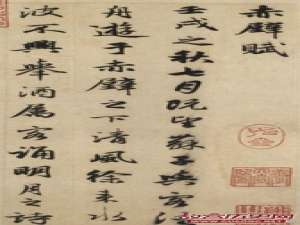 赤壁賦
壬戌之秋七月既望蘇子與客泛
舟遊于赤壁之下清風徐來水
波不興舉酒属客誦明月之詩